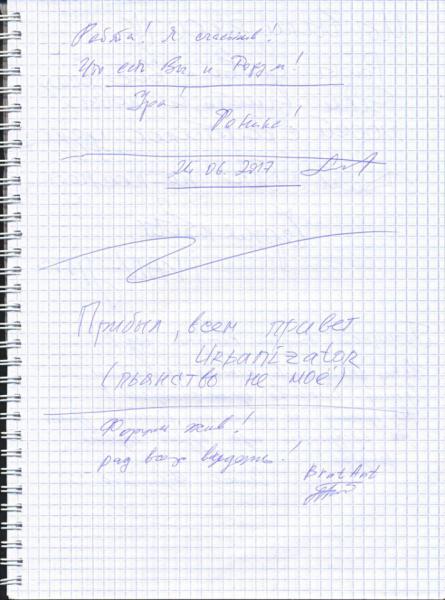 Ребята! Я счастлив!
Что есть Вы и Форум!
Ура!
24.06.2017
Прибыл, всем привет
Urbanizator
(пьянство не моё)
Форум жив!
рад всех видеть!
BratAnt